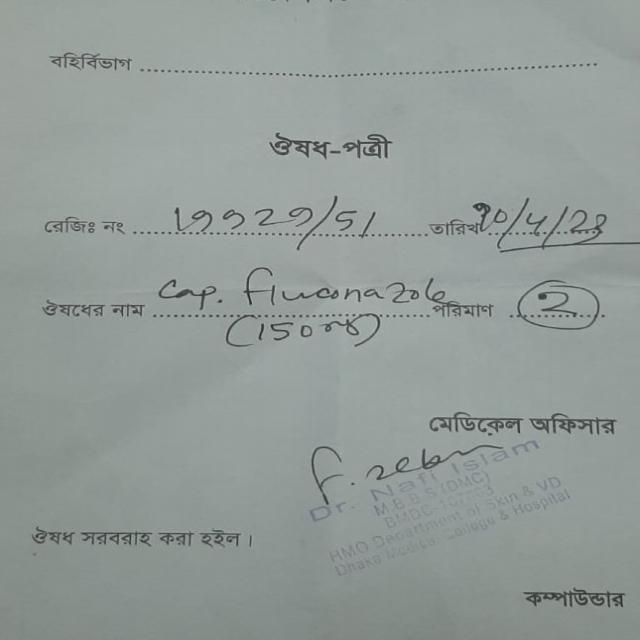 বহির্বিভাগ
ঔষধ-পত্রী
রেজিঃ নং 19929/51 তারিখ
ঔষধের নাম Cap. Fluconazole পরিমাণ 2
(150mg)
মেডিকেল অফিসার
Dr. Nafi Islam
M.B.B.S (DMC)
BMDC
HMO Department of Skin & VD
Dhaka Medical College & Hospital
ঔষধ সরবরাহ করা হইল।
কম্পাউন্ডার